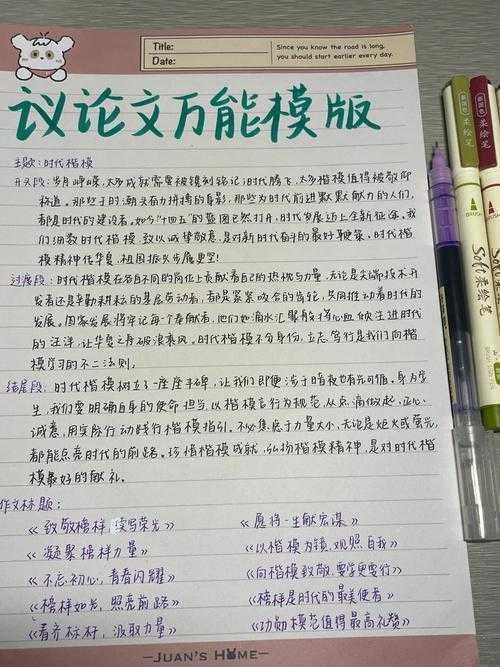 Title:
Date:
Since you know the road is long,
you should start earlier every day.
议论文万能模版
主题：时代楷模
开头段：岁月峥嵘，太多成就需要被镌刻铭记；时代腾飞，太多楷模值得被敬仰
称道。那些于时潮头奋力拼搏的身影，那些为时代前进默默献力的人们，
都是时代的建设者。如今"十四五"的蓝图已然打开，时代发展迈上全新征途。我
们细数时代楷模，致以诚挚敬意，是对新时代奋斗的最好鞭策。时代楷
模精神化华夏，祖国振兴步履更坚！
过渡段：时代楷模在各自不同的岗位上贡献着自己的热忱与力量，无论是尖端技术开
发者还是辛勤耕耘的基层劳动者，都是紧紧咬合的齿轮，共同推动着时代的
发展。国家发展将牢记每个奉献者，他们如滴水汇聚般将心血倾注进时代
的汪洋，让华夏之舟破浪乘风。时代楷模不分身份，立志笃行是我们向楷
模学习的不二法则。
结尾段：时代楷模树立了一座座丰碑，让我们即便涉于暗夜也有光可循。身为学
生，我们要明确自身的使命担当，以楷模言行为规范，从点滴做起，正心
诚意，用实际行动践行楷模指引。不必焦虑于力量大小，无论是炬火或萤光，
都能点亮时代的前路。珍惜楷模成就，弘扬楷模精神，是对时代楷
模最好的献礼。
作文标题：
《致敬榜样，续写荣光》
《愿将一生献宏谋》
《凝聚榜样力量》
《以楷模为镜，观照自我》
《不忘初心，青春闪耀》
《向楷模致敬，要学更要行》
《榜样如光，照亮前路》
《榜样是时代的最美使者》
《看齐标杆，汲取力量》
《功勋模范值得最高礼赞》
—JUAN'S HOME—
柔绘笔
柔绘笔
BRUSH
BRUSH
Soft柔绘笔